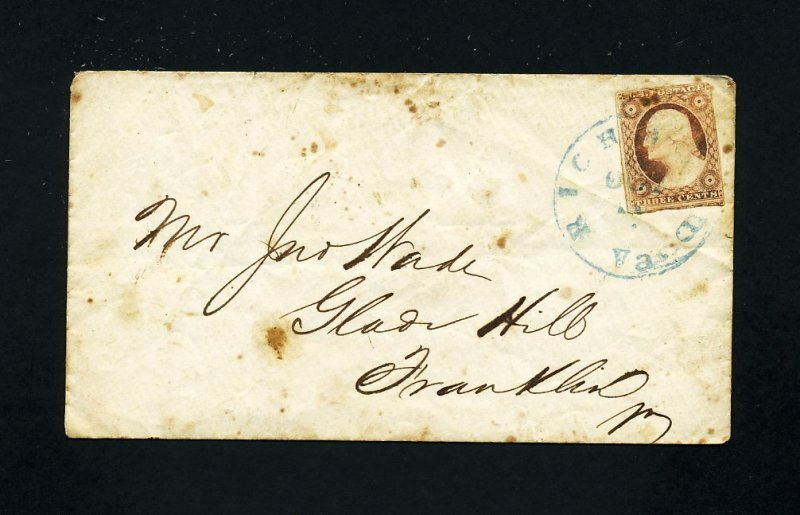 U.S. POSTAGE
THREE CENTS
RICH D Va.
Mr Jno Wade
Glade Hill
Franklin